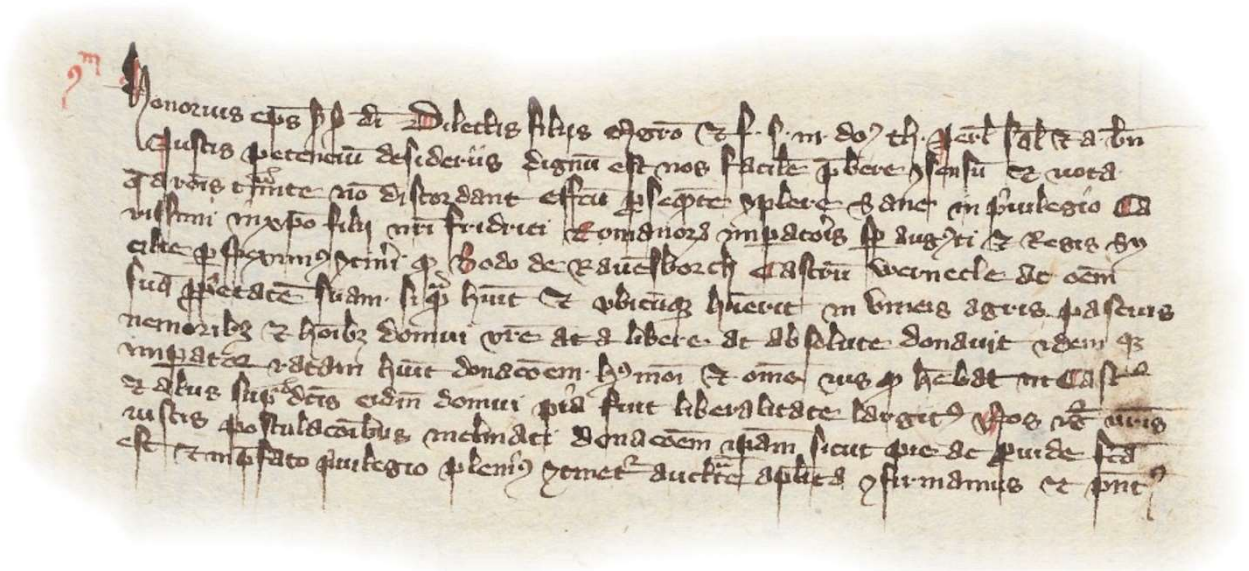 Honorius eps di Dilectis filijs Mgro et f. s. m. do th. Jerl sal et a bn
Justis petenciu desideriis dignu est nos facile pbere ꝯsensu et vota
q a rois tmite no discordant effcu ꝓseqnte ꝯplere Sane in priuilegio Ca
rissimi in xpo filij nri fridrici Romanorꝝ impatoris sp augꝰti et Regis Sy
cilie ꝑspeximꝰ ꝯtineri ꝙ Bodo de Rauesborch Castru wernecle ac oem
sua ꝓprietate suam huit et vbicuqꝫ huerit in vineis agris pascuis
nemoribꝫ et hoibꝫ domui vre libere ac absolute donauit idem qꝫ
impator ratam huit donacoem hꝰmoi et ome ius ꝙ hebat in Castro
et alijs supdcis eidm domui pia fuit liberalitate largitꝰ Nos igit vris
iustis postulacoibus inclinati donacoem ipam sicut pie ac ꝓuide fca
est et in pfato priuilegio plenꝰ ꝯtinet auctte aplica ꝯfirmamus et pntꝰ